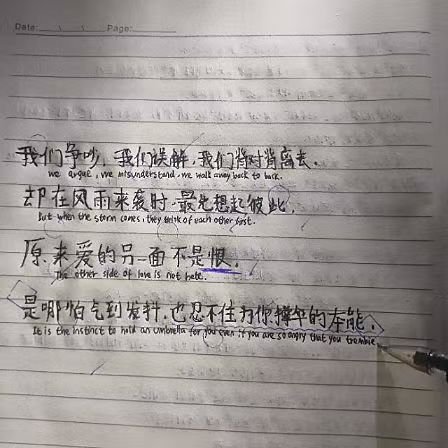 Date: Page:
我们争吵，我们误解，我们背对背离去.
we argue, we misunderstand, we walk away back to back.
却在风雨来袭时，最先想起彼此.
But when the storm comes, they think of each other first.
原来爱的另一面不是恨.
The other side of love is not hate.
是哪怕气到发抖，也忍不住为你撑伞的本能.
It is the instinct to hold an umbrella for you even if you are so angry that you tremble.